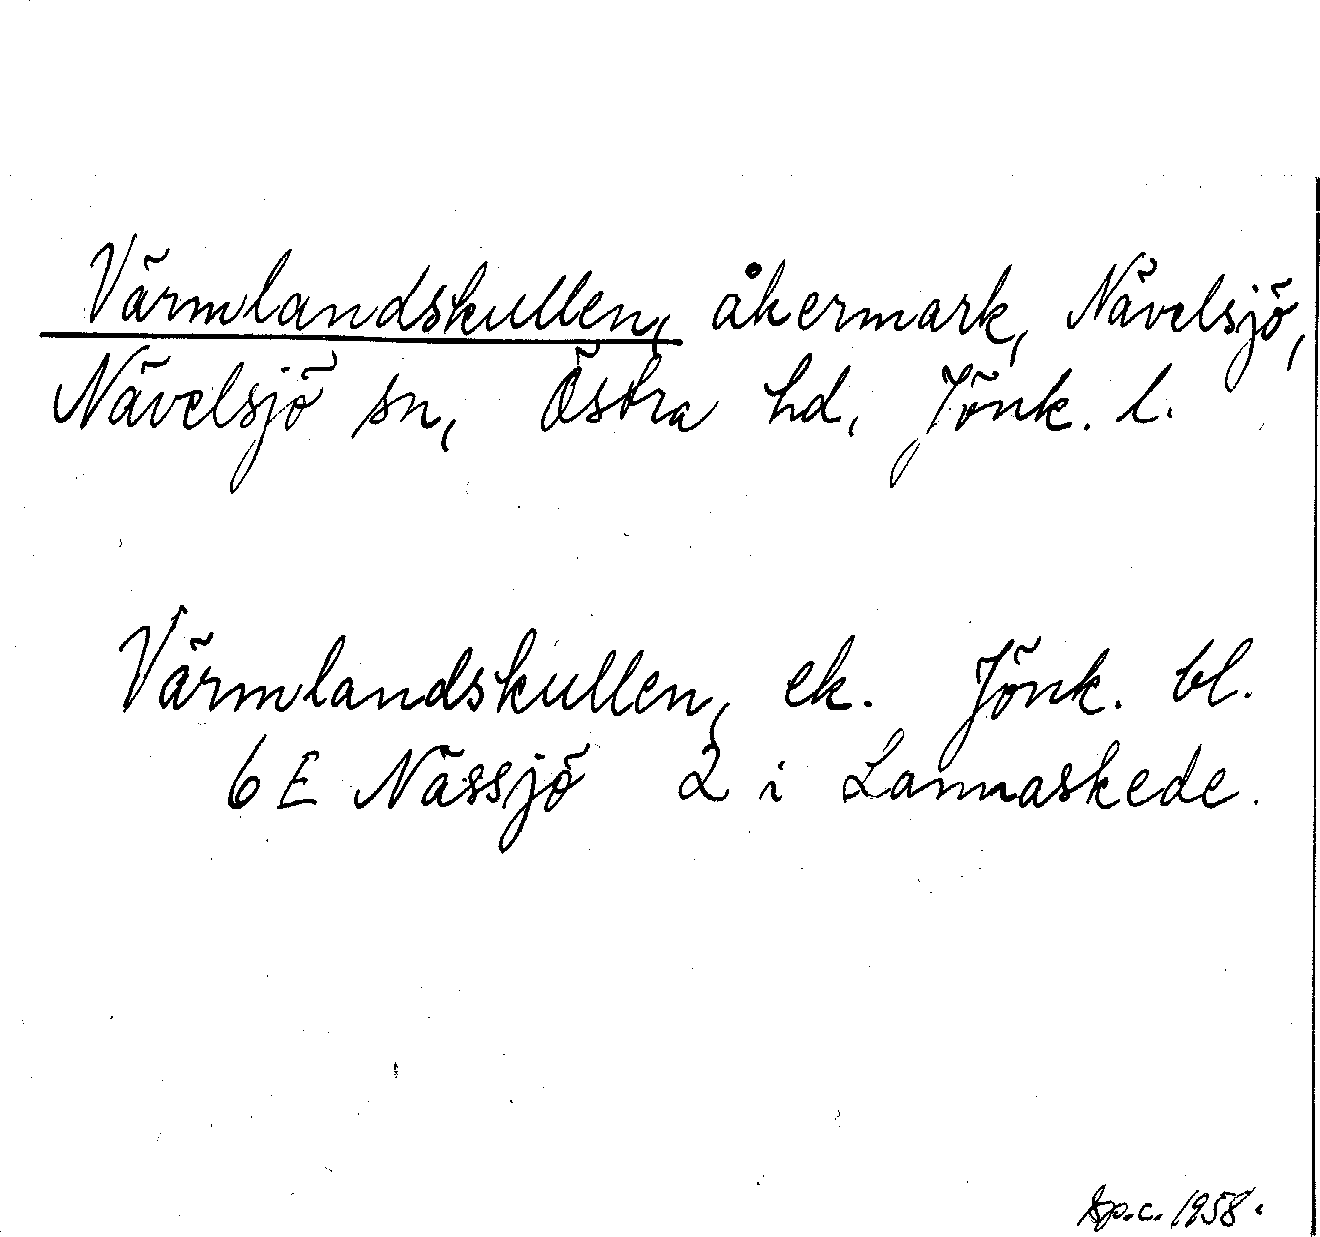 Värmlandskullen, åkermark, Nävelsjö,
Nävelsjö sn, Östra hd, Jönk. l.
Värmlandskullen, ek. Jönk. bl.
6 E Nässjö 2 i Lannaskede.
Sp.c. 1958.